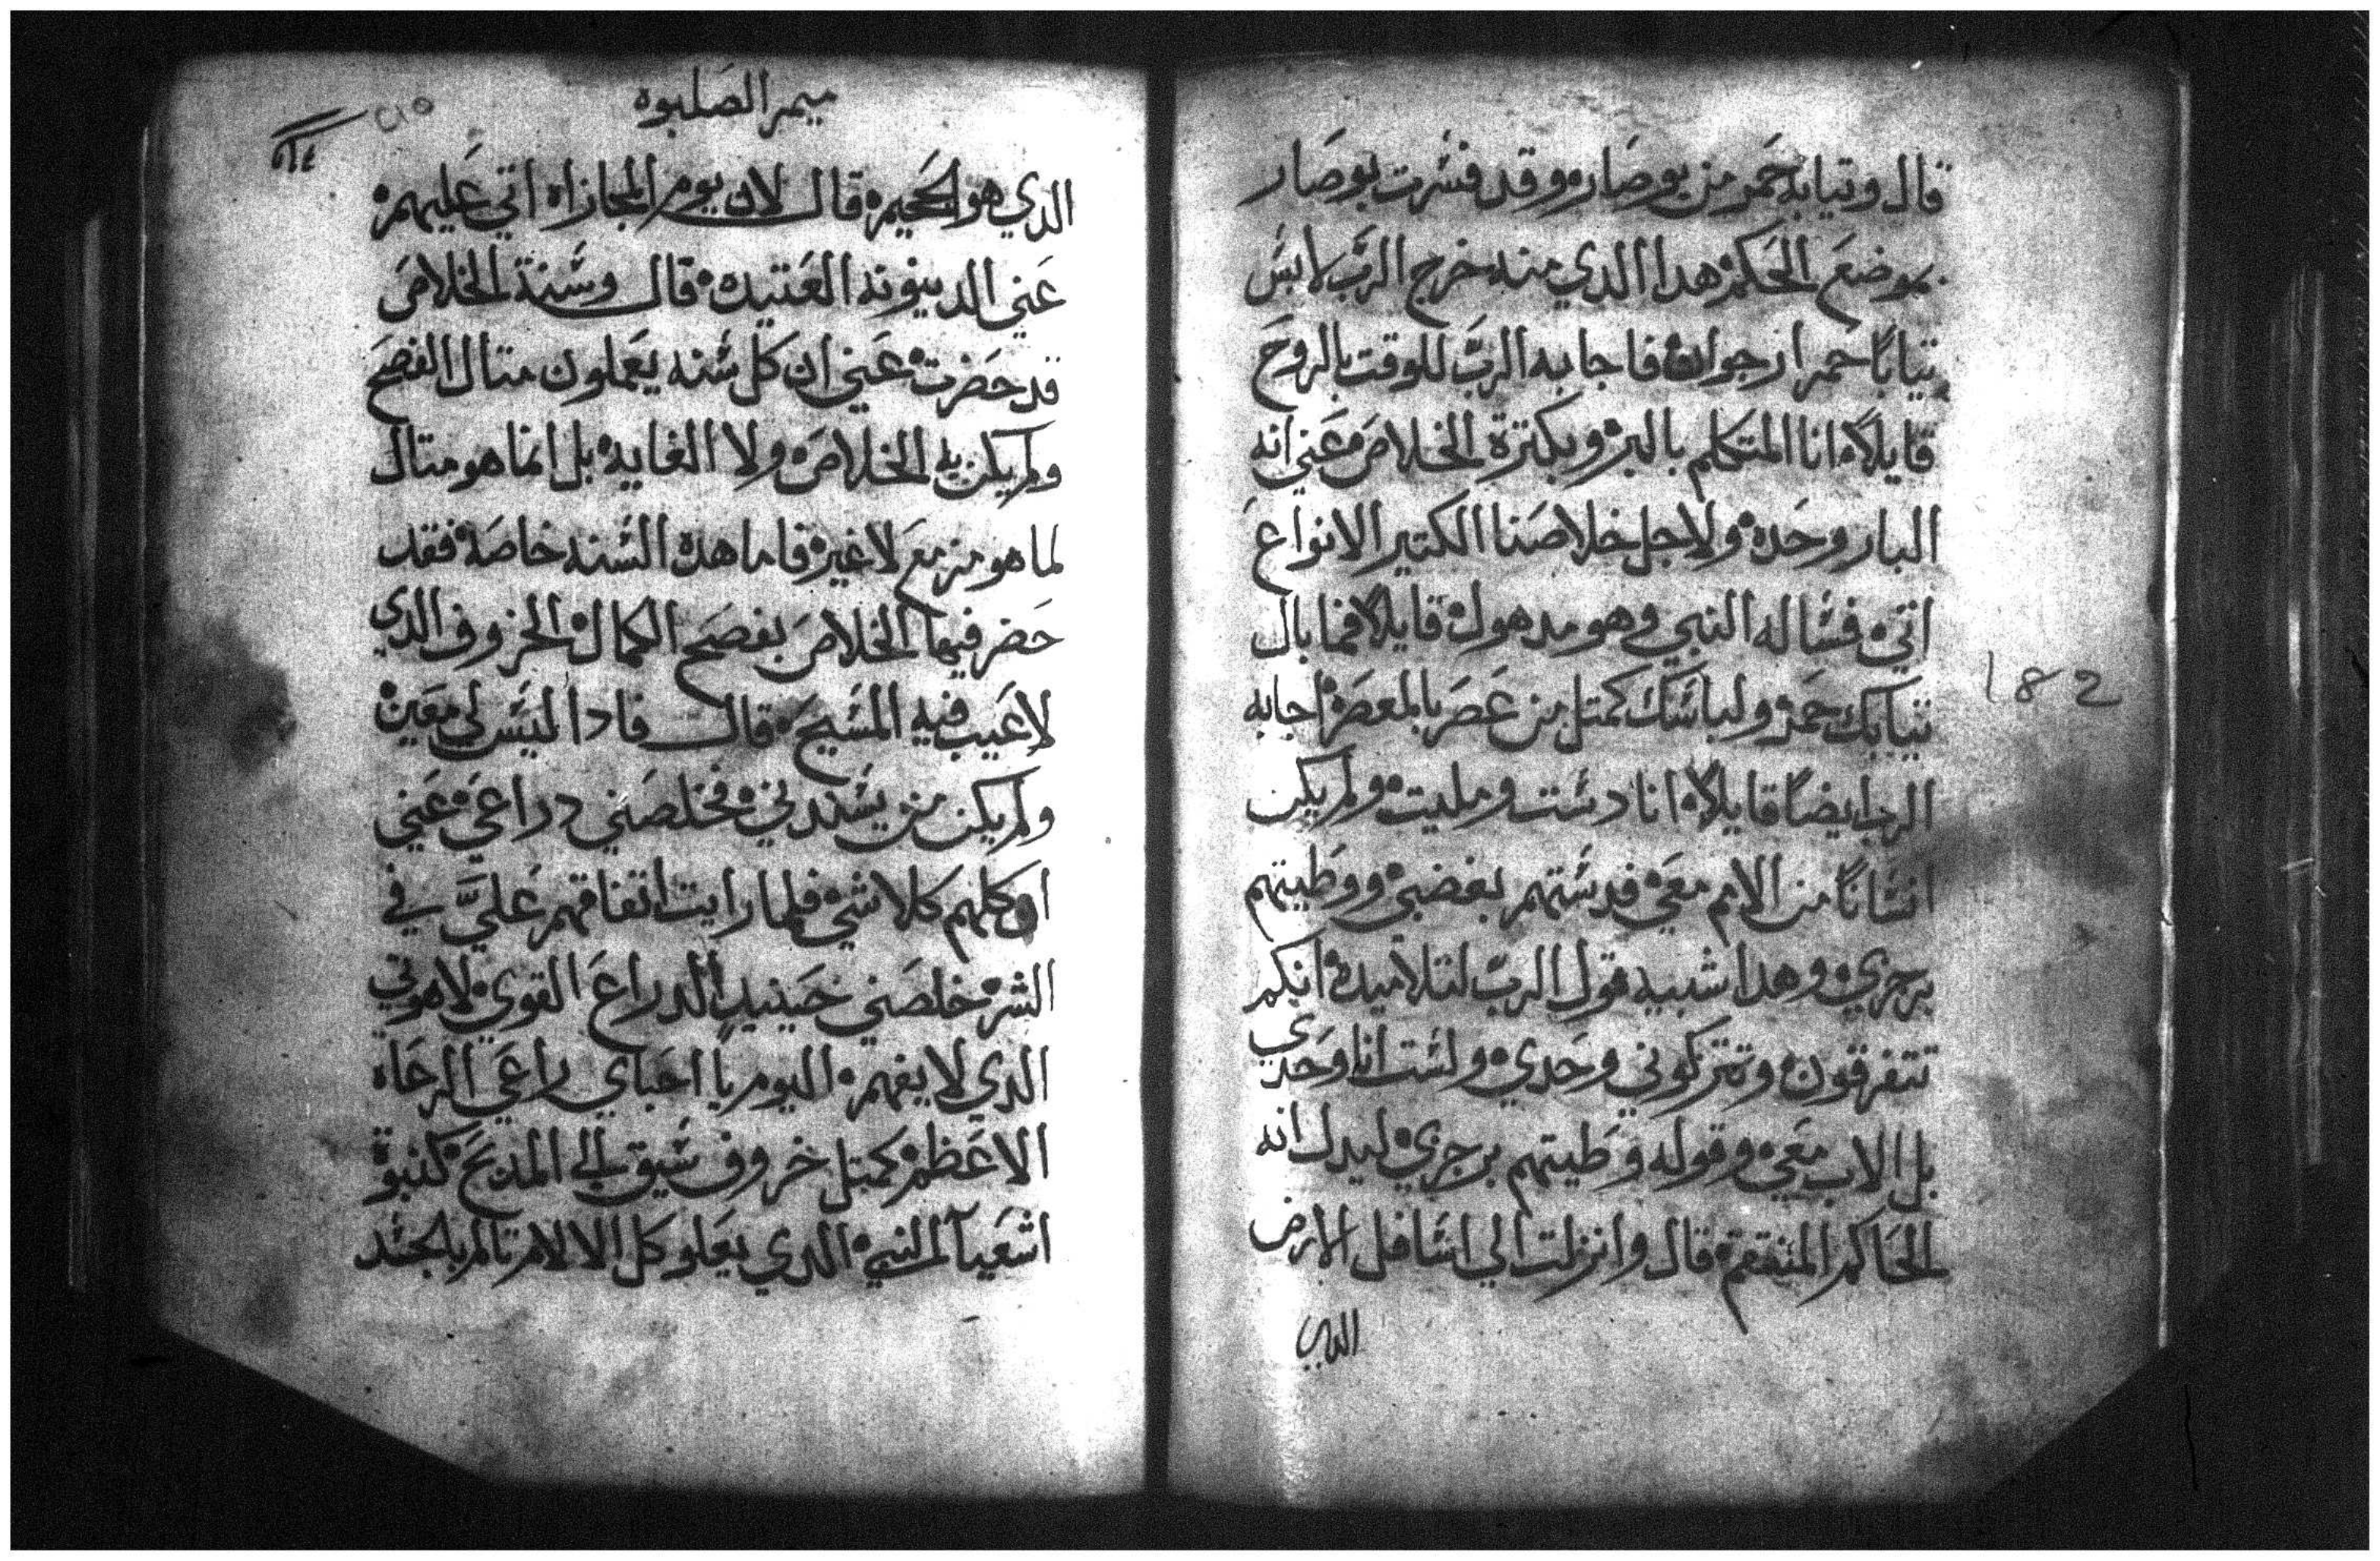 قال وتيابه حمر من بوصاره وقد فسرت بوصار
بموضع الحكم هدا الدي منه خرج الرب لابس
تيابًا حمر ارجوان فاجابه الرب للوقت بالروح
قايلاً انا المتكلم بالبر وبكترة الخلاص عني انه
البار وحده ولاجل خلاصنا الكتير الانواع
اتي فساله النبي وهو مدهول قايلا فما بال
تيابك حمر ولباسك كمتل من عصر بالمعصره اجابه
الرب ايضاً قايلاً انا دست ومليت ولم يكن
انساناً من الامم معي فدستهم بغضبي ووطيتهم
برجزي وهدا شبيه قول الرب لتلاميده انكم
تتفرقون وتتركوني وحدي ولست انا وحدي
بل الاب معي وقوله وطيتهم برجزي ليدل انه
الحاكم المنتقم قال وانزلت الي اسافل الارض
الدي
182
ميمر الصلبوه
٢١٥
الدي هو الجحيم قال لان يوم المجازاه اتي عليهم
عني الدينونه العتيده قال وسنة الخلاص
قد حضرت عني ان كل سنه يعملون متال الفصح
ولم يكن به الخلاص ولا الغايه بل انما هو متال
لما هو مزمع لا غير فاما هده السنه خاصه فقد
حضر فيها الخلاص بفصح الكمال الخروف الدي
لا عيب فيه المسيح قال فادا ليس لي معين
ولم يكن من يسندني فخلصني دراعي عني
او كلهم كلا شي فلما رايت اتفاقهم علي في
الشر خلصني حينيد الدراع القوي لاهوتي
الدي لا يفهم اليوم يا احباي راعي الرعاه
الاعظم كمتل خروف سيق الي المدبح كنبوة
اشعيا النبي الدي يعلو كل الالام تالم بالجسد